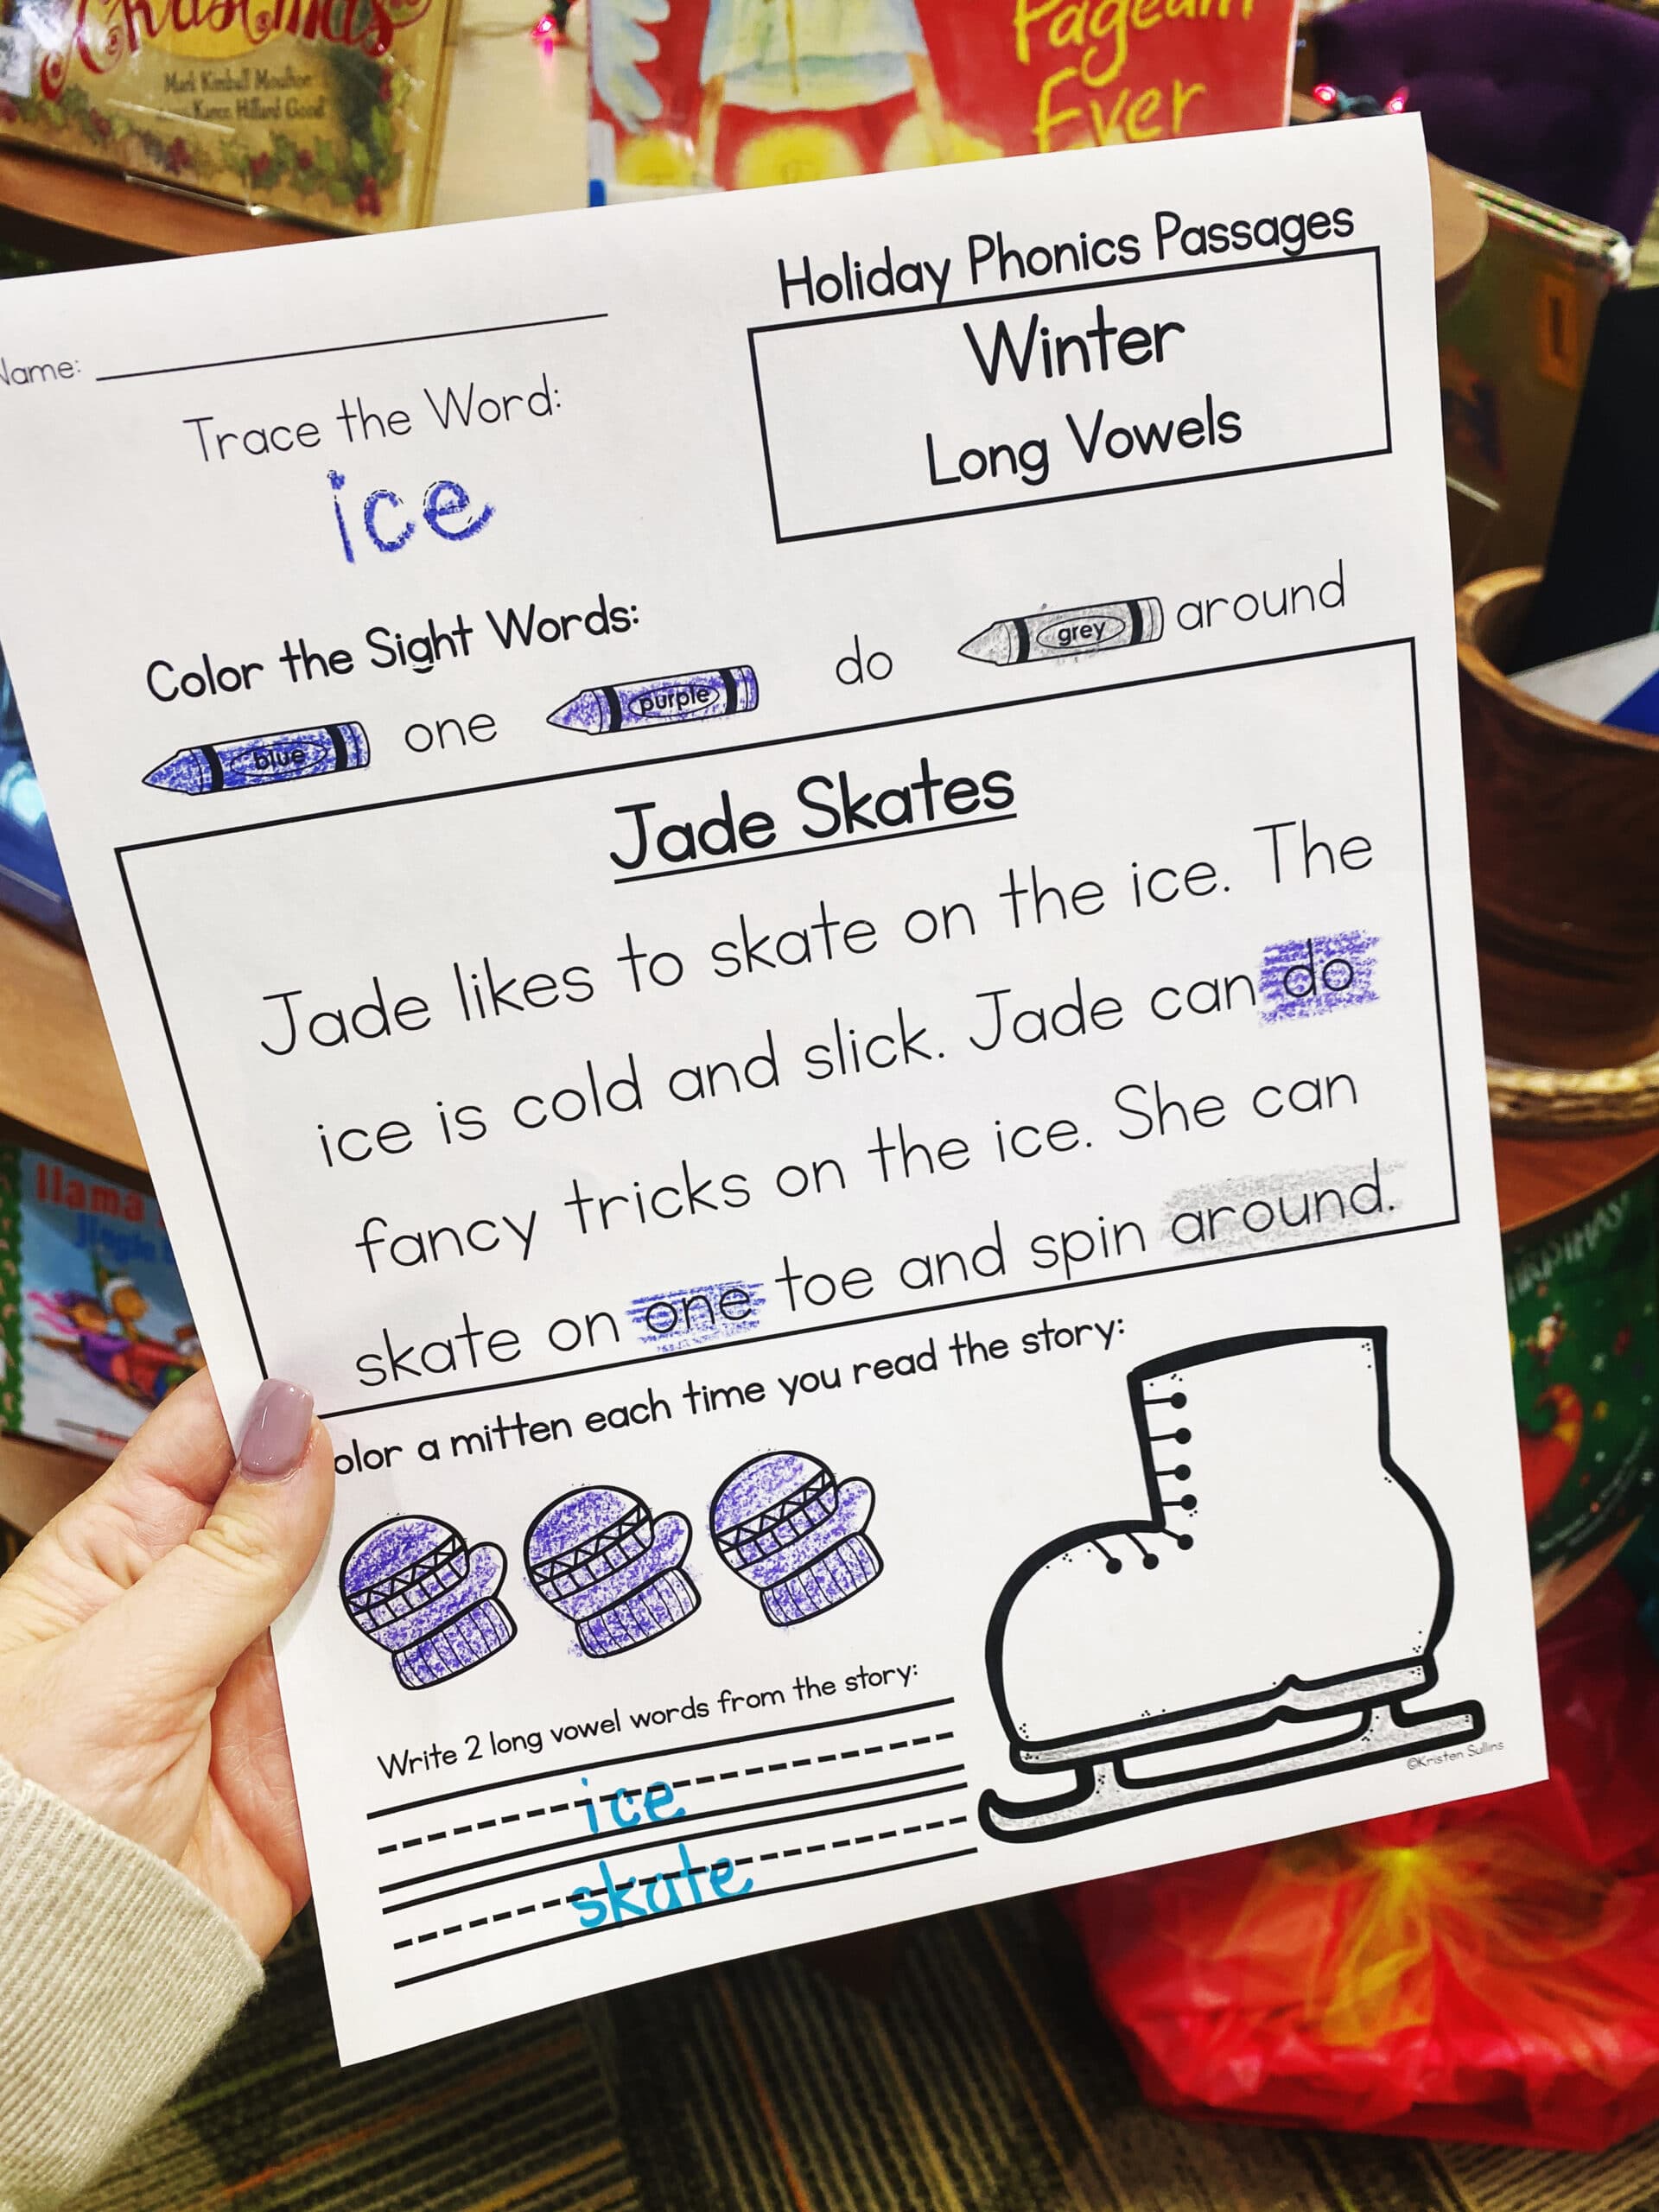 Christmas
Mark Kimball Moulton
Karen Hillard Good
Pageant
Ever
Holiday Phonics Passages
Name:
Winter
Long Vowels
Trace the Word:
ice
Color the Sight Words:
blue one purple do grey around
Jade Skates
Jade likes to skate on the ice. The
ice is cold and slick. Jade can do
fancy tricks on the ice. She can
skate on one toe and spin around.
olor a mitten each time you read the story:
Write 2 long vowel words from the story:
ice
skate
©Kristen Sullins
llama
jingle